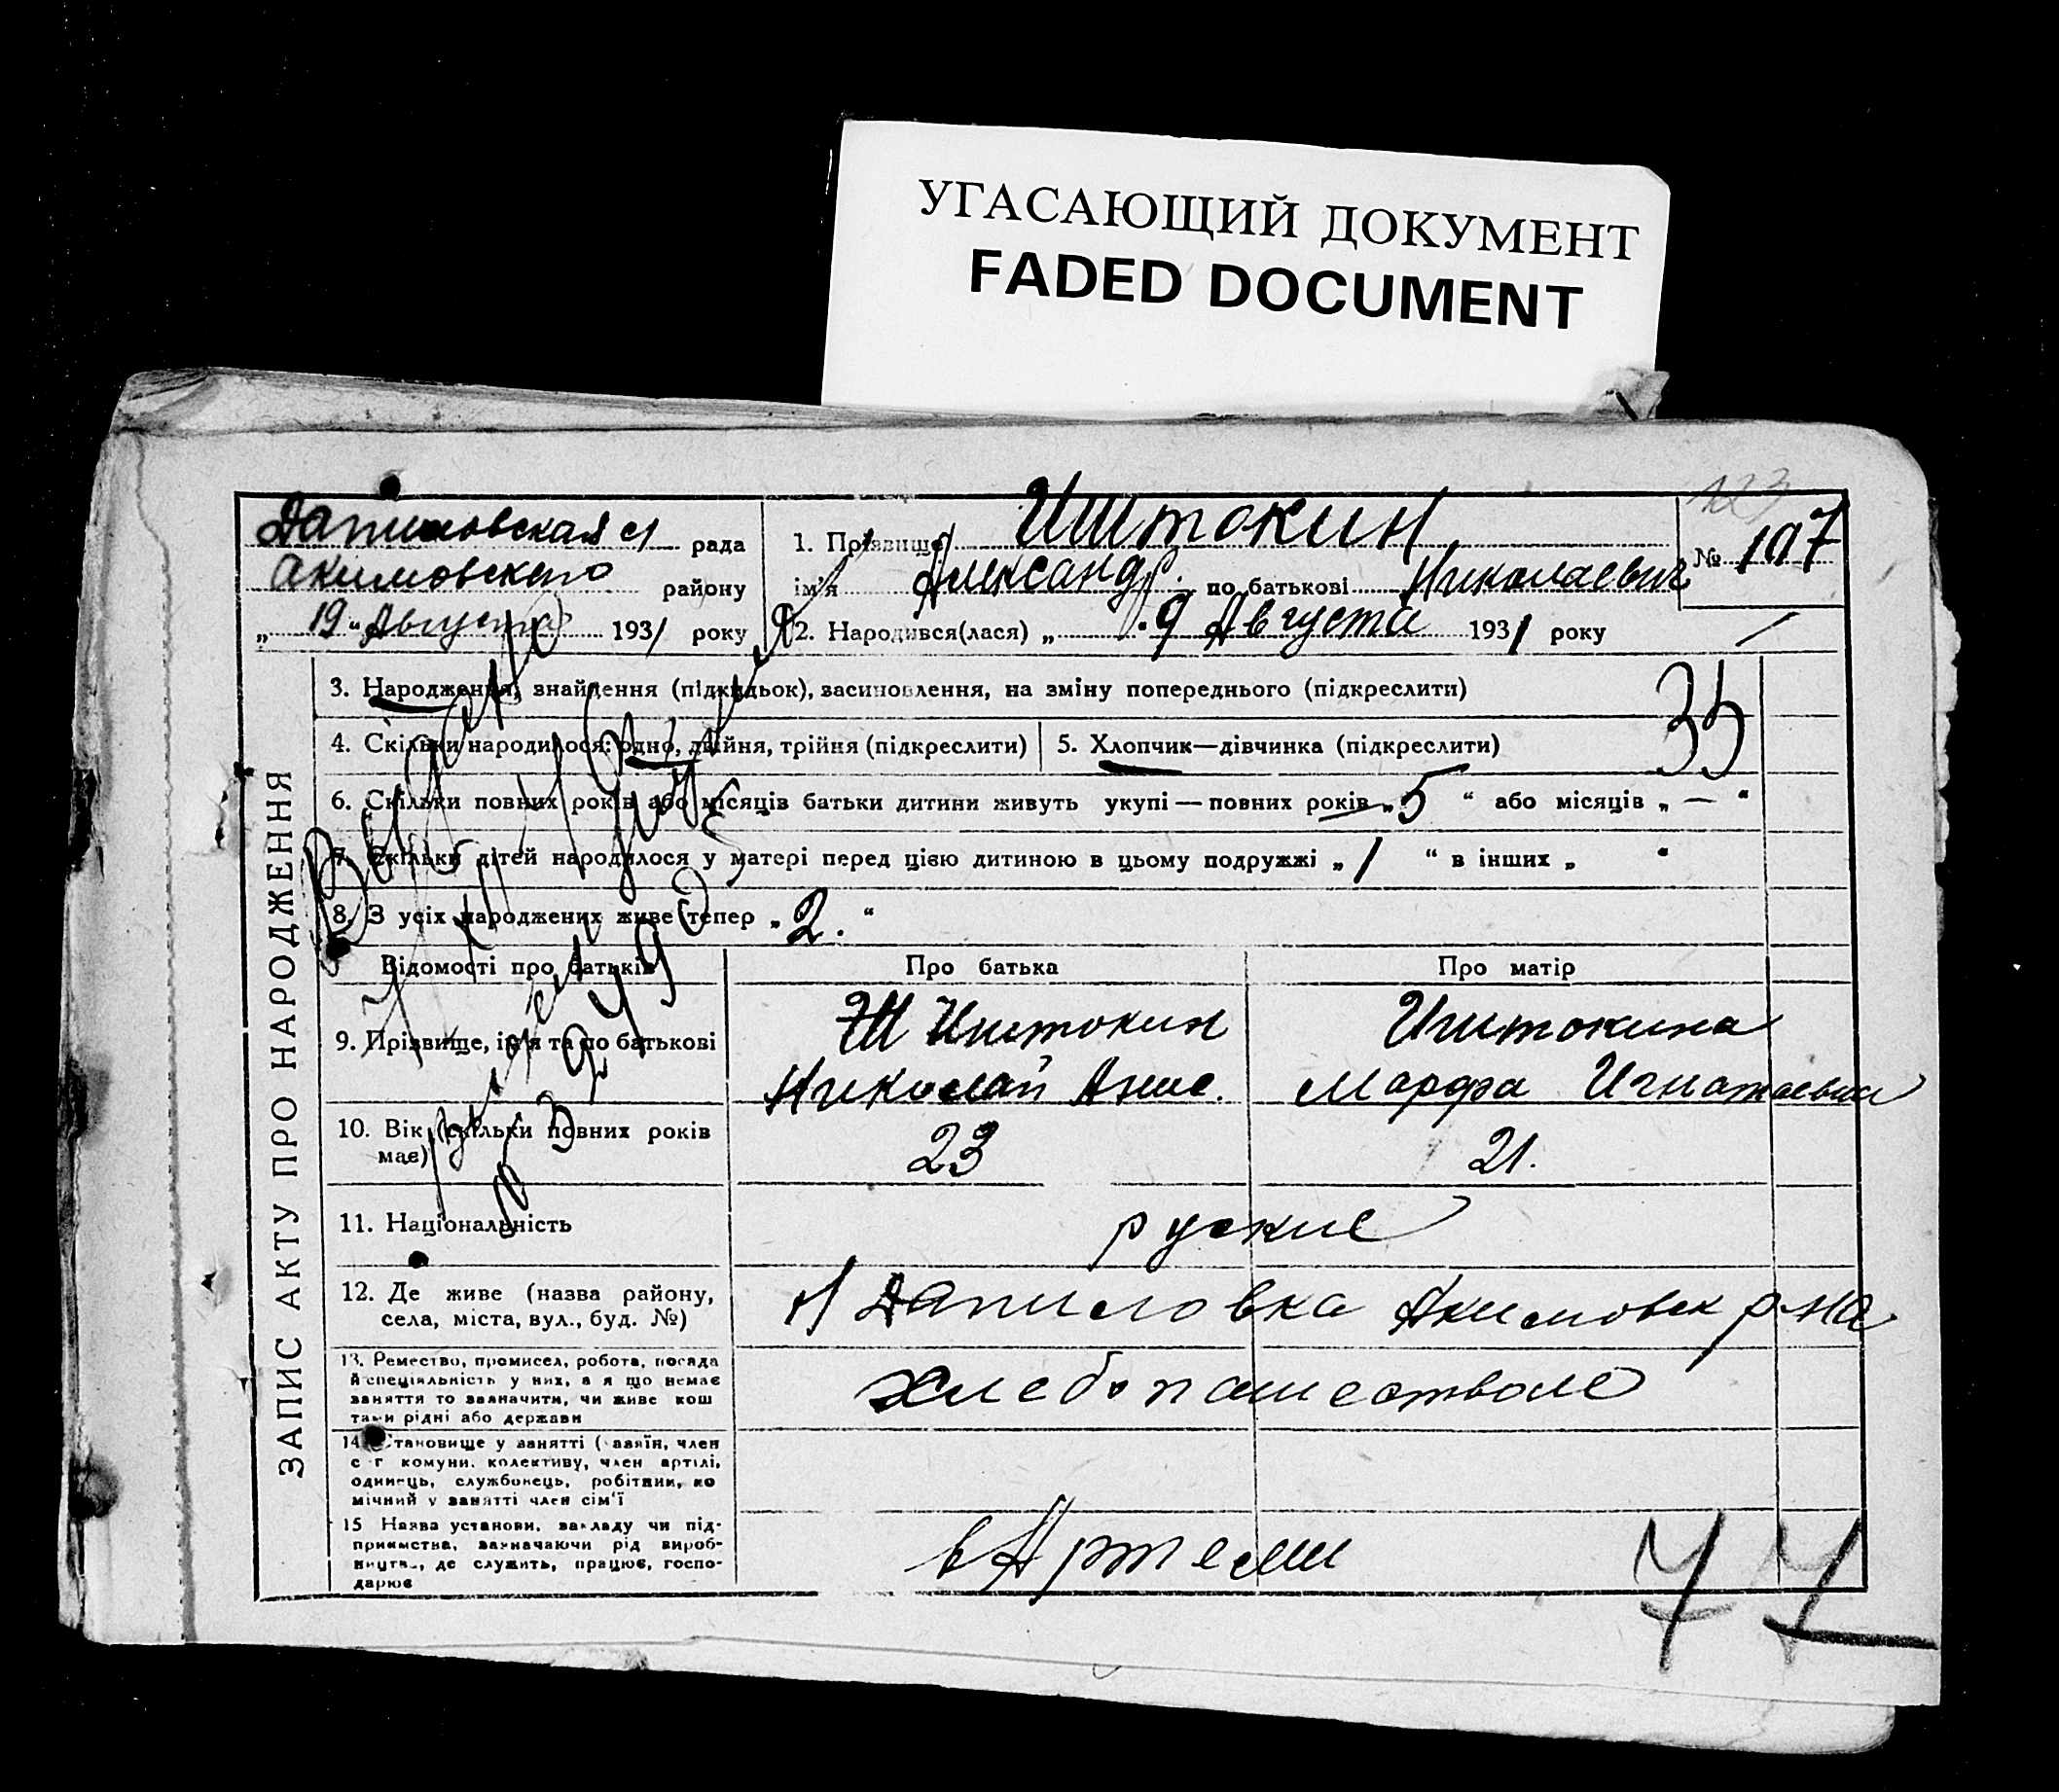 УГАСАЮЩИЙ ДОКУМЕНТ
FADED DOCUMENT
123
Даниловская с/ рада
Акимовского району
„ 19 “ Августа 1931 року
1. Прізвище Иштокин
ім'я Александр. по батькові Николаевич
№ 107
2. Народився(лася) „ 9 Августа 1931 року
ЗАПИС АКТУ ПРО НАРОДЖЕННЯ
3. Народження, знайдення (підкидьок), засиновлення, на зміну попереднього (підкреслити)
4. Скільки народилося: одно, двійня, трійня (підкреслити) 5. Хлопчик—дівчинка (підкреслити)
6. Скільки повних років або місяців батьки дитини живуть укупі — повних років „ 5 “ або місяців „ — “
7. Скільки дітей народилося у матері перед цією дитиною в цьому подружжі „ 1 “ в інших „ “
8. З усіх народжених живе тепер „ 2. “
Відомості про батьків Про батька Про матір
9. Прізвище, ім'я та по батькові
Иштокин
Николай
Иштокина
Марфа
10. Вік (скільки повних років
має)
23 21.
11. Національність
руские
12. Де живе (назва району,
села, міста, вул., буд. №)
с/ Даниловка Акимовск р-на
13. Ремество, промисел, робота, посада
й спеціяльність у них, а я що немає
заняття то зазначити, чи живе кош
тами рідні або держави
хлебопашество
14. Становище у занятті (хазяїн, член
с г комуни, колективу, член артілі,
одинець, службовець, робітник, по
мічний у занятті член сім'ї
15 Назва установи, закладу чи під-
приємства, зазначаючи рід вироб-
ництв., де служить, працює, госпо-
дарює
в Артели